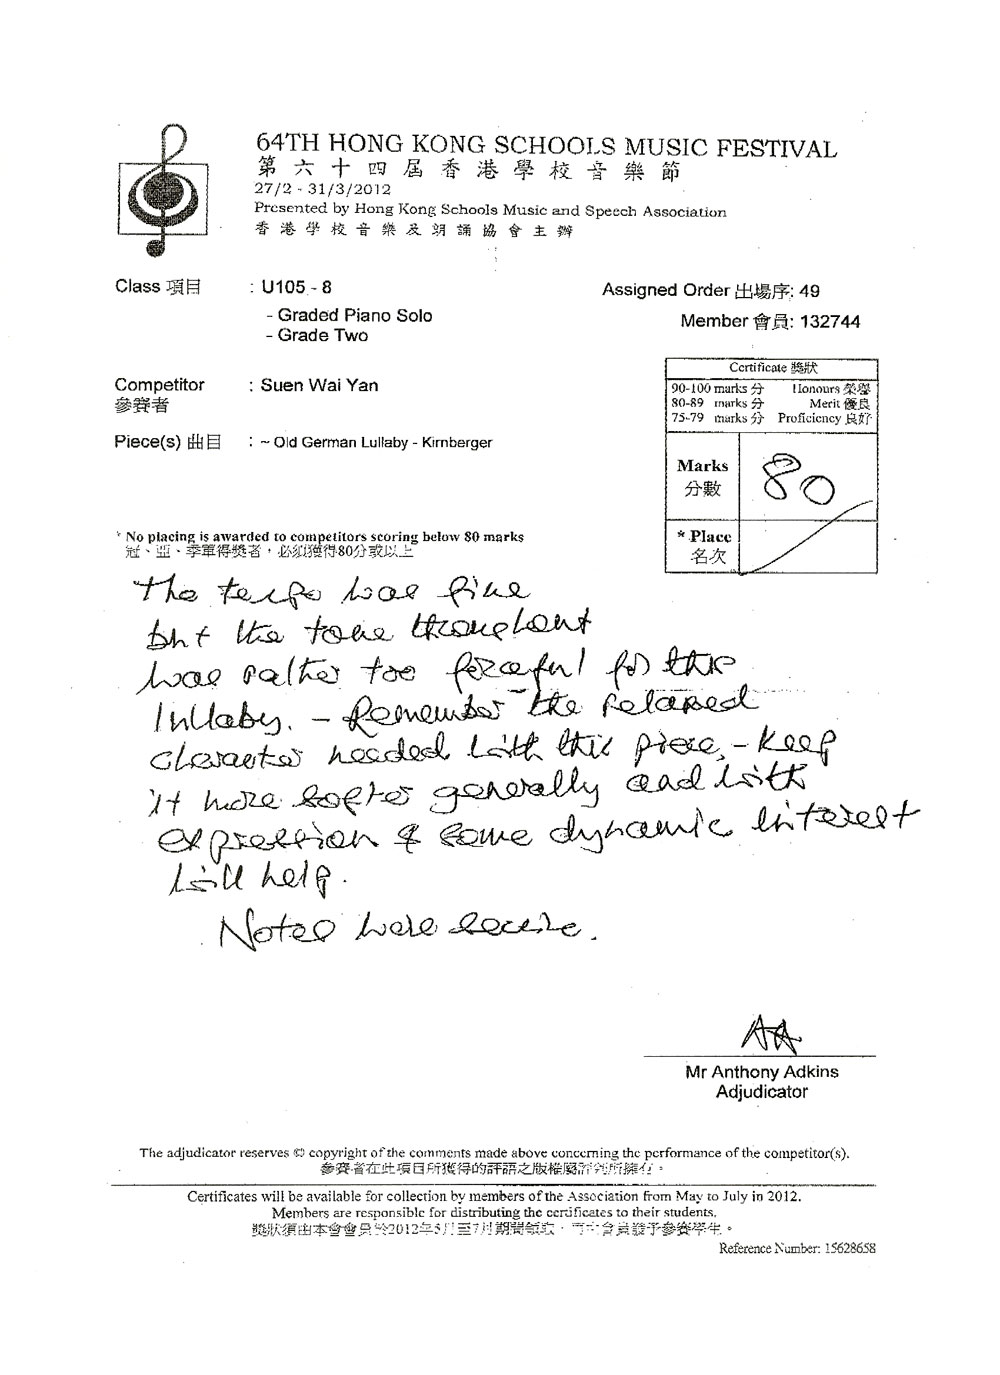 64TH HONG KONG SCHOOLS MUSIC FESTIVAL
第六十四屆香港學校音樂節
27/2 - 31/3/2012
Presented by Hong Kong Schools Music and Speech Association
香港學校音樂及朗誦協會主辦
Class 項目 : U105 - 8
- Graded Piano Solo
- Grade Two
Assigned Order 出場序: 49
Member 會員: 132744
Competitor : Suen Wai Yan
參賽者
Piece(s) 曲目 : ~ Old German Lullaby - Kirnberger
Certificate 獎狀
90-100 marks 分 Honours 榮譽
80-89 marks 分 Merit 優良
75-79 marks 分 Proficiency 良好
Marks 80
分數
* Place
名次
* No placing is awarded to competitors scoring below 80 marks
冠、亞、季軍得獎者，必須獲得80分或以上
The tempo was fine
but the tone throughout
was rather too forceful for this
lullaby. - Remember the relaxed
character needed with this piece, - keep
it more softer generally and with
expression & some dynamic interest
will help.
Notes were secure.
AA
Mr Anthony Adkins
Adjudicator
The adjudicator reserves © copyright of the comments made above concerning the performance of the competitor(s).
參賽者在此項目所獲得的評語之版權屬評判所擁有。
Certificates will be available for collection by members of the Association from May to July in 2012.
Members are responsible for distributing the certificates to their students.
獎狀須由本會會員於2012年5月至7月期間領取，會員發予參賽學生。
Reference Number: 15628658